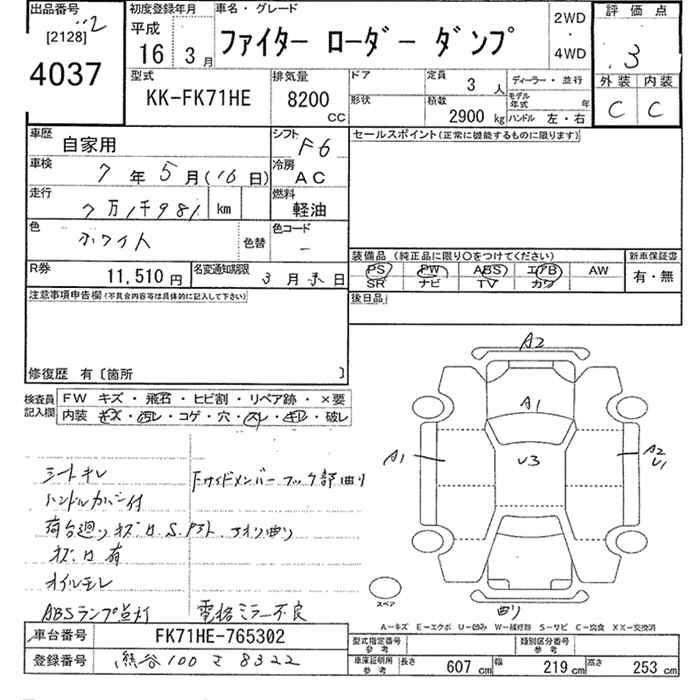 出品番号
[2128]
4037
初度登録年月
平成
16 3 月
車名・グレード
ファイター ローダー ダンプ
2WD
・
4WD
評価点
3
外装 内装
C C
型式
KK-FK71HE
排気量
8200
CC
ドア
形状
定員
3 人
積載
2900 kg
ディーラー・並行
モデル
年式 年
ハンドル 左・右
車歴
自家用
シフト
F6
車検
7 年 5 月(16 日)
冷房
AC
走行
7万1千981 km
燃料
軽油
色
ホワイト
色替
色コード
-
R券
11,510 円
名変通知期限
3 月 末 日
セールスポイント(正常に機能するものに限ります)
装備品 (純正品に限り○をつけてください)
新車保証書
PS PW ABS エアB AW
SR ナビ TV カワ
有・無
後日品
注意事項申告欄(不具合内容等は具体的に記入して下さい)
修復歴 有〔箇所 〕
検査員
記入欄
FW キズ・飛石・ヒビ割・リペア跡・×要
内装・キズ・汚レ・コゲ・穴・スレ・切レ・破レ
シートキレ
Fサイドメンバーフック部曲り
ハンドルカバー付
荷台廻りキズ凹.S.アオリ曲り
キズ凹有
オイルモレ
ABSランプ点灯
電格ミラー不良
A2
A1
A1
U3
A2
U1
曲り
スペア
A-キズ E-エクボ U-凹み W-補修跡 S-サビ C-腐食 XX-交換済
車台番号
FK71HE-765302
登録番号
熊谷100 さ 8322
型式指定番号
参考
類別区分番号
参考
車庫証明用
参考
長さ 607 cm 幅 219 cm 高さ 253 cm